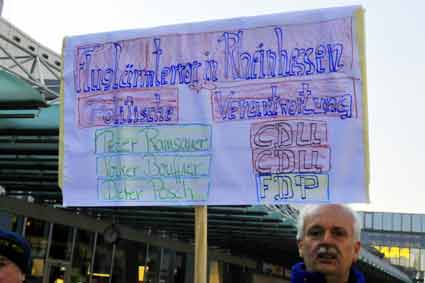 Fluglärmterror in Rheinhessen
Politische Verantwortung
Peter Ramsauer CDU
Volker Bouffier CDU
Dieter Posch FDP